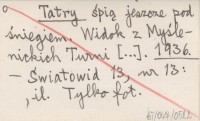 Tatry śpią jeszcze pod
śniegiem. Widok z Myśle-
nickich Turni [...]. 1936.
- Światowid 13, nr 13:
, il. Tylko fot.